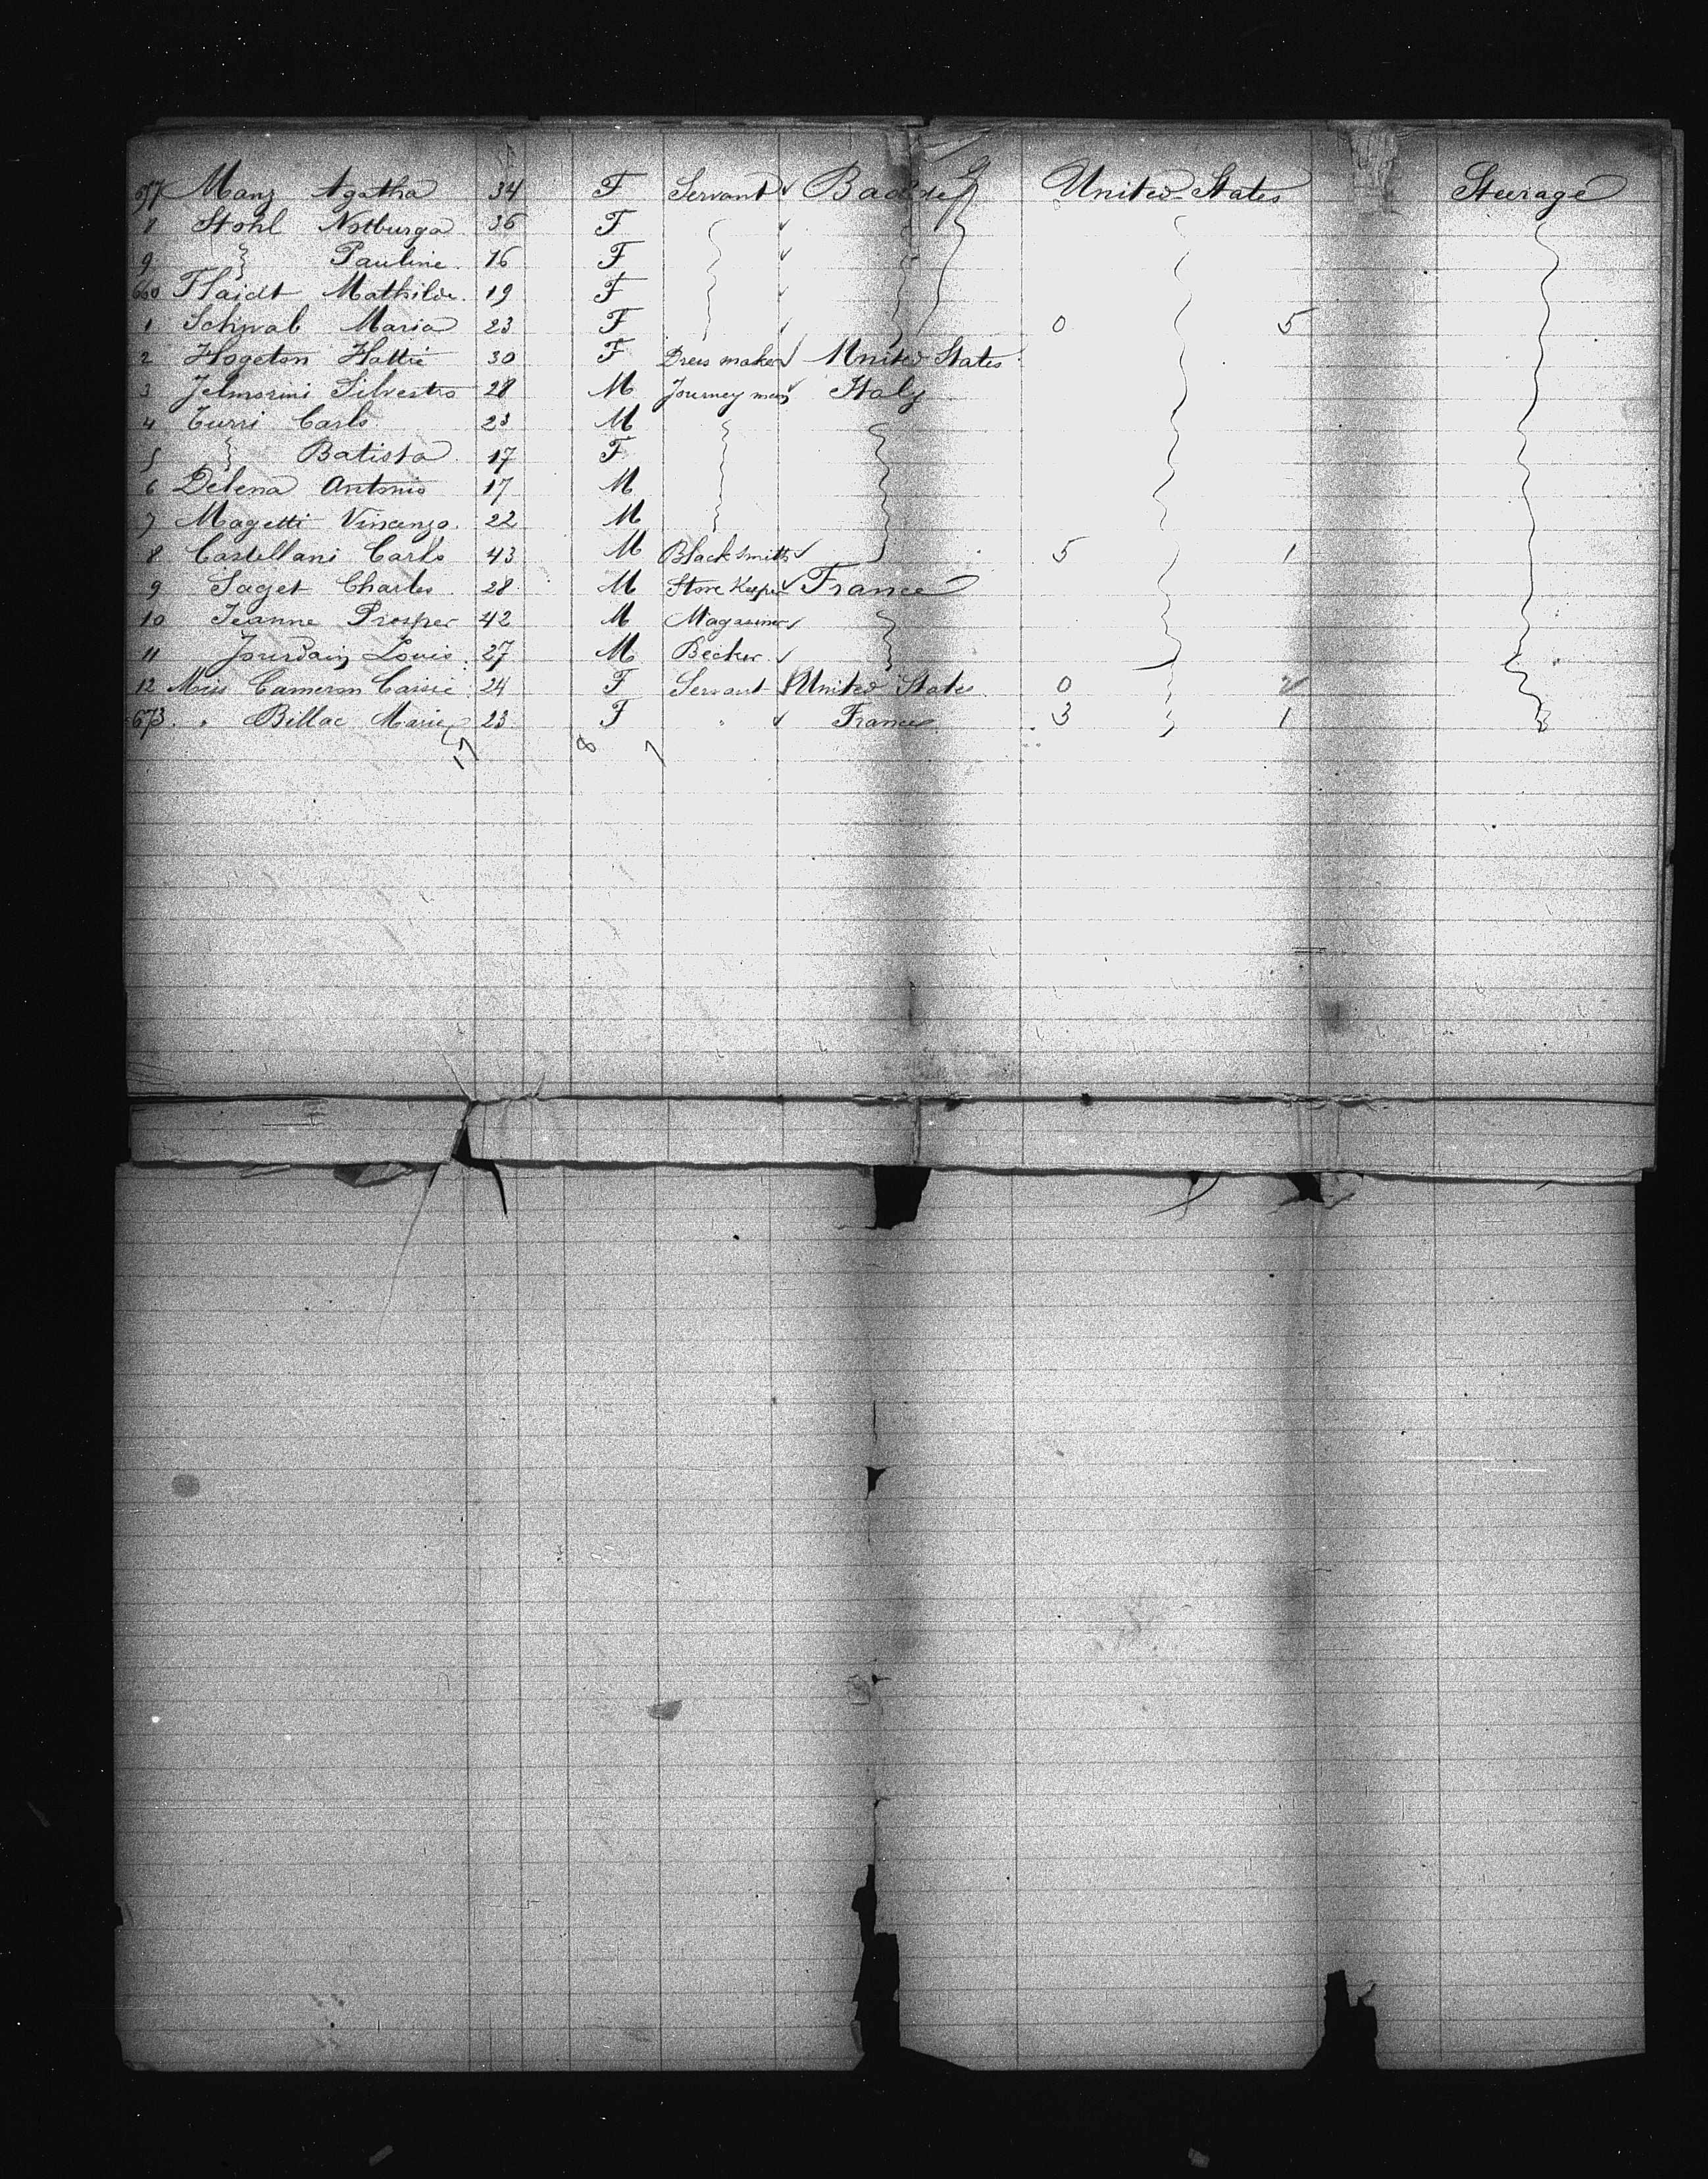 657 Manz Agatha 34 F Servant ✓ Baden United States Steerage
8 Stohl Notburga 36 F ✓
9 " Pauline 16 F ✓
660 Flaidt Mathilde 19 F ✓
1 Schwab Maria 23 F ✓ 0 5
2 Hogeton Hattie 30 F Dress maker ✓ United States
3 Jelmorini Silvestro 28 M Journey man ✓ Italy
4 Turri Carlo 23 M
5 " Batista 17 F
6 Delena Antonio 17 M
7 Magetti Vincenzo 22 M
8 Castellani Carlo 43 M Blacksmith ✓ 5 1
9 Saget Charles 28 M Store Keeper ✓ France
10 Jeanne Prosper 42 M Magasiner ✓
11 Jourdain Louis 27 M Becker ✓
12 Miss Cameron Cassie 24 F Servant United States 0 2
673 " Billac Marie 23 F " ✓ France 3 1
17 8 7